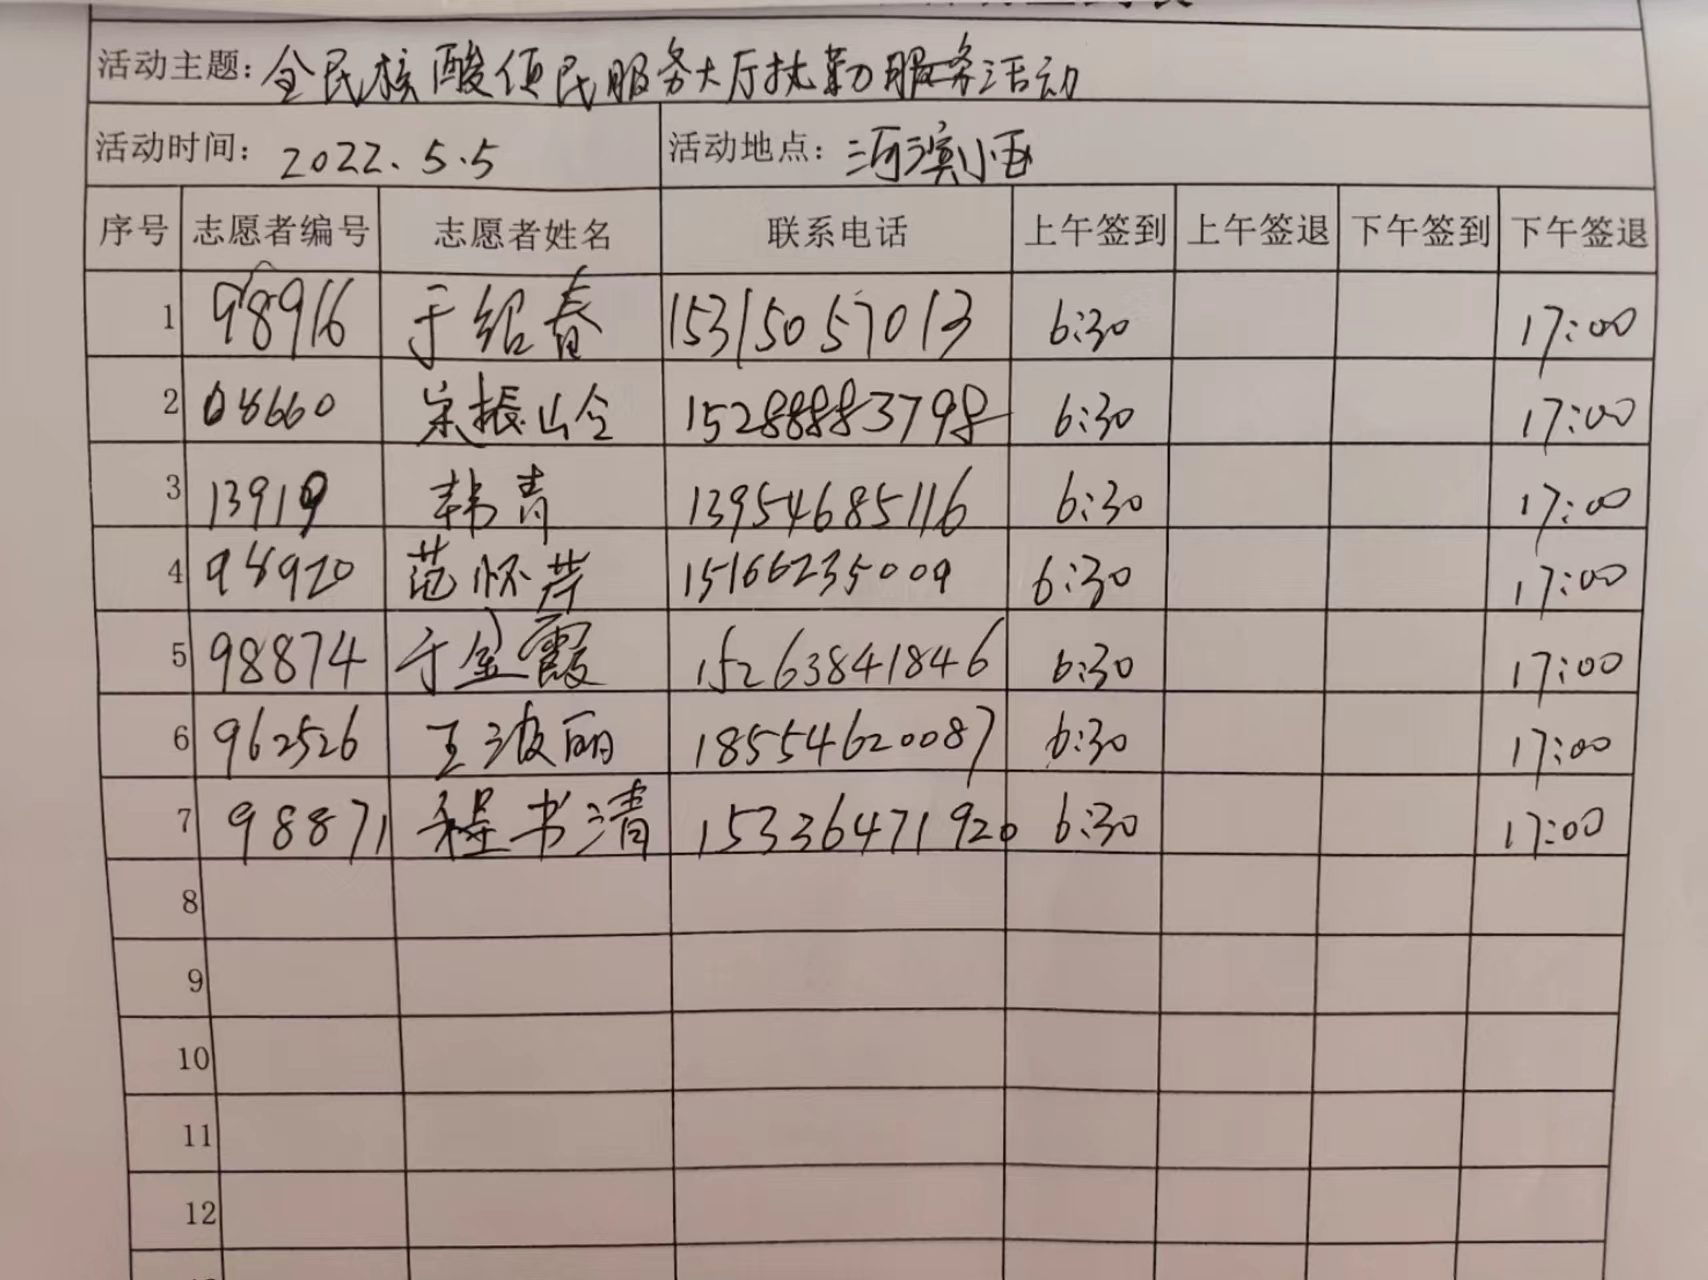 活动主题：全民核酸便民服务大厅执勤服务活动
活动时间：2022.5.5 活动地点：河滨小区
序号 志愿者编号 志愿者姓名 联系电话 上午签到 上午签退 下午签到 下午签退
1 98916 于绍春 15315057013 6:30 17:00
2 08660 宋振岭 15288883798 6:30 17:00
3 13919 韩青 13954685116 6:30 17:00
4 98920 范怀芹 15166235009 6:30 17:00
5 98874 于金霞 15263841846 6:30 17:00
6 962526 王波丽 18554620087 6:30 17:00
7 98871 程书清 15336471920 6:30 17:00
8
9
10
11
12